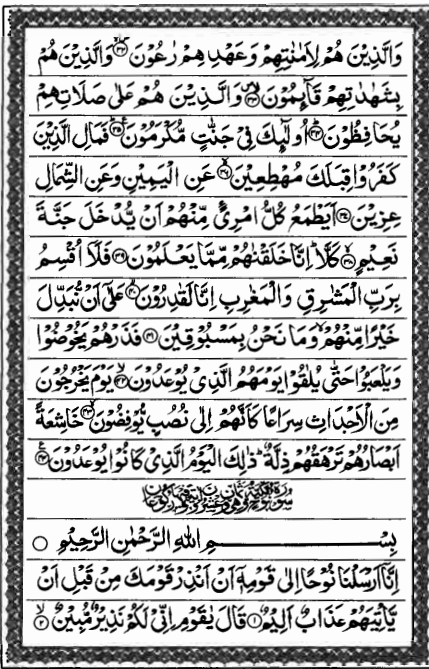 وَالَّذِيْنَ هُمْ لِاَمٰنٰتِهِمْ وَعَهْدِهِمْ رٰعُوْنَ ﴿٣٢﴾ وَالَّذِيْنَ هُمْ
بِشَهٰدٰتِهِمْ قَآئِمُوْنَ ﴿٣٣﴾ وَالَّذِيْنَ هُمْ عَلٰى صَلَاتِهِمْ
يُحَافِظُوْنَ ﴿٣٤﴾ اُولٰٓئِكَ فِيْ جَنّٰتٍ مُّكْرَمُوْنَ ﴿٣٥﴾ فَمَالِ الَّذِيْنَ
كَفَرُوْا قِبَلَكَ مُهْطِعِيْنَ ﴿٣٦﴾ عَنِ الْيَمِيْنِ وَعَنِ الشِّمَالِ
عِزِيْنَ ﴿٣٧﴾ اَيَطْمَعُ كُلُّ امْرِئٍ مِّنْهُمْ اَنْ يُّدْخَلَ جَنَّةَ
نَعِيْمٍ ﴿٣٨﴾ كَلَّا ؕ اِنَّا خَلَقْنٰهُمْ مِّمَّا يَعْلَمُوْنَ ﴿٣٩﴾ فَلَآ اُقْسِمُ
بِرَبِّ الْمَشٰرِقِ وَالْمَغٰرِبِ اِنَّا لَقٰدِرُوْنَ ﴿٤٠﴾ عَلٰٓى اَنْ نُّبَدِّلَ
خَيْرًا مِّنْهُمْ وَمَا نَحْنُ بِمَسْبُوْقِيْنَ ﴿٤١﴾ فَذَرْهُمْ يَخُوْضُوْا
وَيَلْعَبُوْا حَتّٰى يُلٰقُوْا يَوْمَهُمُ الَّذِيْ يُوْعَدُوْنَ ﴿٤٢﴾ يَوْمَ يَخْرُجُوْنَ
مِنَ الْاَجْدَاثِ سِرَاعًا كَاَنَّهُمْ اِلٰى نُصُبٍ يُّوْفِضُوْنَ ﴿٤٣﴾ خَاشِعَةً
اَبْصَارُهُمْ تَرْهَقُهُمْ ذِلَّةٌ ؕ ذٰلِكَ الْيَوْمُ الَّذِيْ كَانُوْا يُوْعَدُوْنَ ﴿٤٤﴾
بِسْمِ اللّٰهِ الرَّحْمٰنِ الرَّحِيْمِ ○
اِنَّآ اَرْسَلْنَا نُوْحًا اِلٰى قَوْمِهٖٓ اَنْ اَنْذِرْ قَوْمَكَ مِنْ قَبْلِ اَنْ
يَّاْتِيَهُمْ عَذَابٌ اَلِيْمٌ ﴿١﴾ قَالَ يٰقَوْمِ اِنِّيْ لَكُمْ نَذِيْرٌ مُّبِيْنٌ ﴿٢﴾